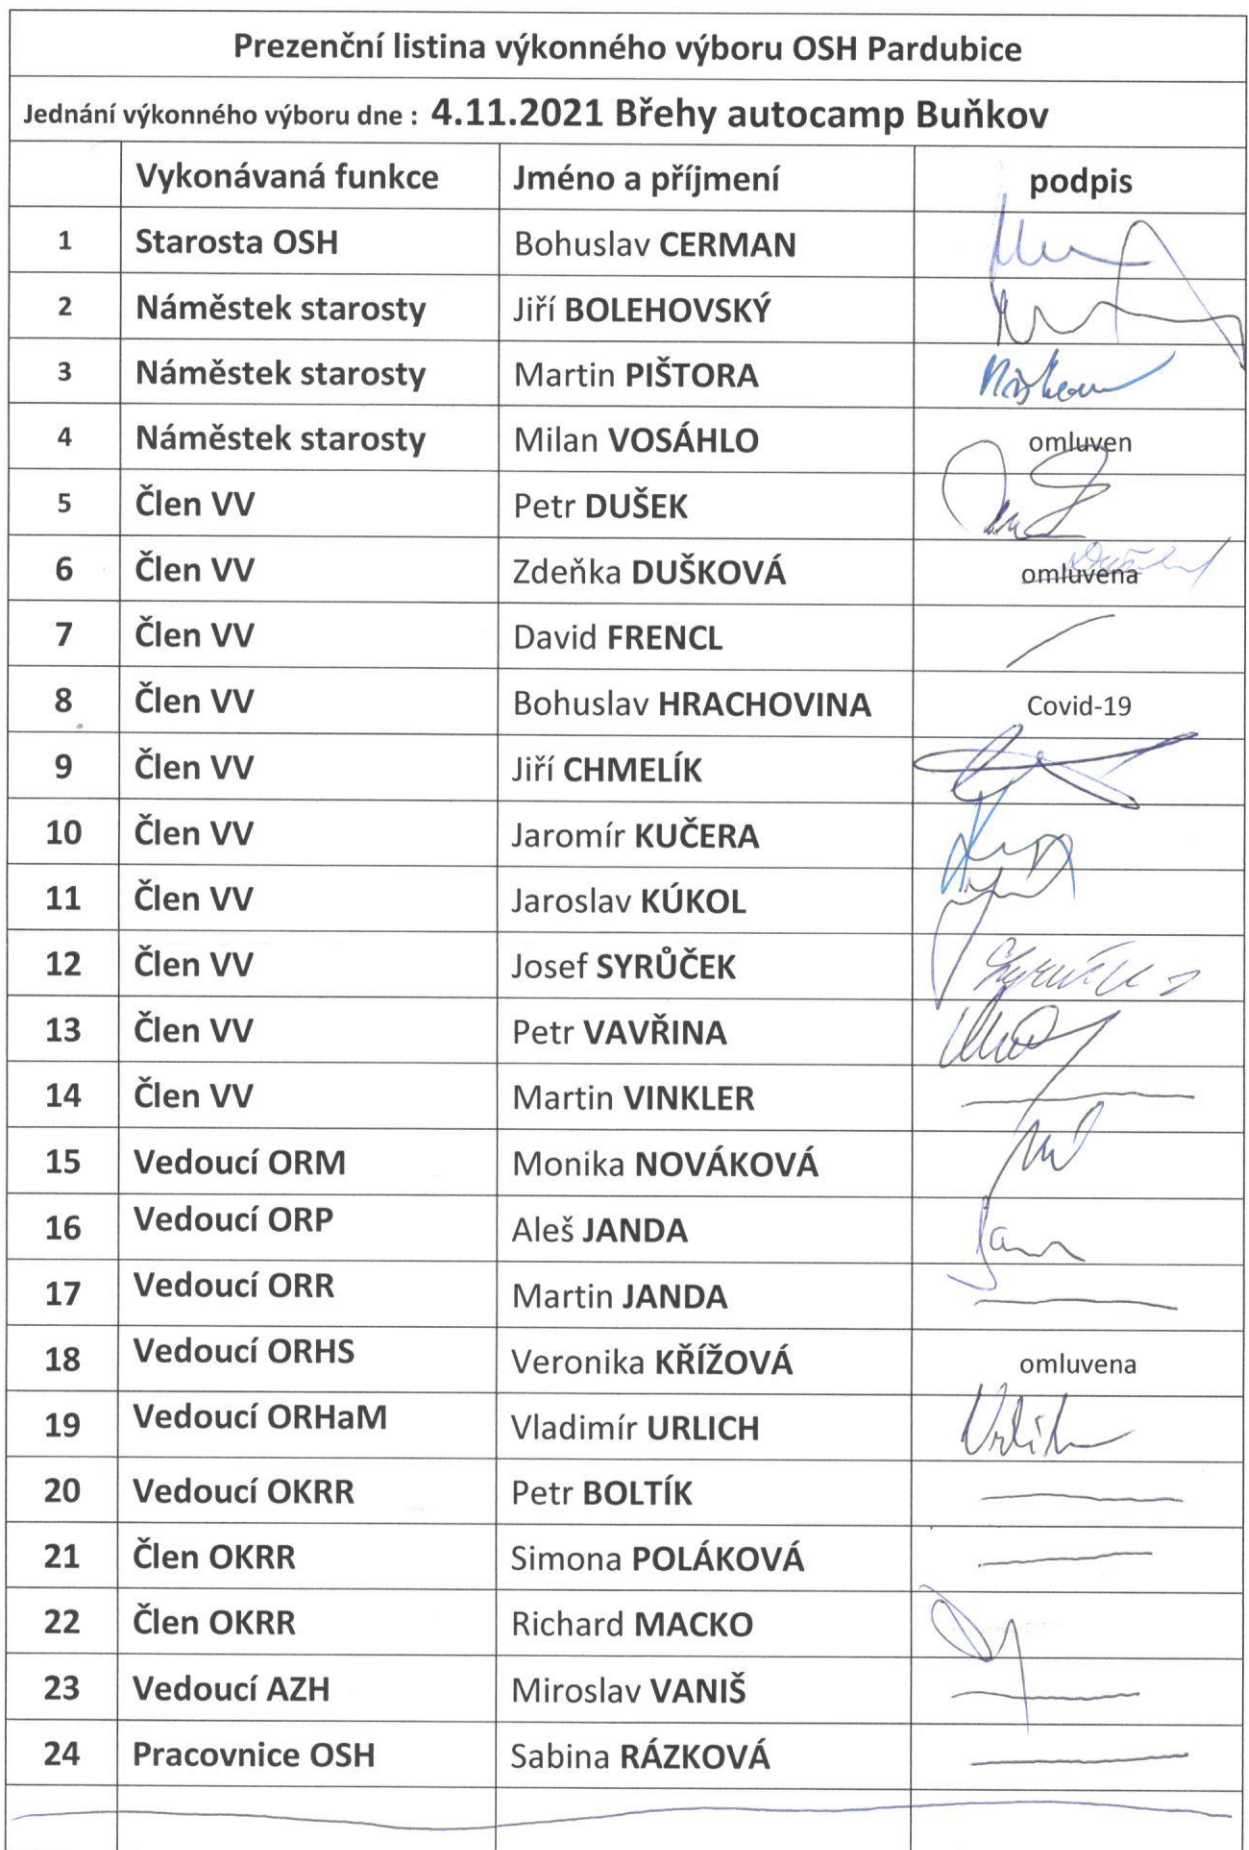 Prezenční listina výkonného výboru OSH Pardubice
Jednání výkonného výboru dne : 4.11.2021 Břehy autocamp Buňkov
Vykonávaná funkce Jméno a příjmení podpis
1 Starosta OSH Bohuslav CERMAN
2 Náměstek starosty Jiří BOLEHOVSKÝ
3 Náměstek starosty Martin PIŠTORA
4 Náměstek starosty Milan VOSÁHLO omluven
5 Člen VV Petr DUŠEK
6 Člen VV Zdeňka DUŠKOVÁ omluvena
7 Člen VV David FRENCL
8 Člen VV Bohuslav HRACHOVINA Covid-19
9 Člen VV Jiří CHMELÍK
10 Člen VV Jaromír KUČERA
11 Člen VV Jaroslav KÚKOL
12 Člen VV Josef SYRŮČEK
13 Člen VV Petr VAVŘINA
14 Člen VV Martin VINKLER
15 Vedoucí ORM Monika NOVÁKOVÁ
16 Vedoucí ORP Aleš JANDA
17 Vedoucí ORR Martin JANDA
18 Vedoucí ORHS Veronika KŘÍŽOVÁ omluvena
19 Vedoucí ORHaM Vladimír URLICH
20 Vedoucí OKRR Petr BOLTÍK
21 Člen OKRR Simona POLÁKOVÁ
22 Člen OKRR Richard MACKO
23 Vedoucí AZH Miroslav VANIŠ
24 Pracovnice OSH Sabina RÁZKOVÁ